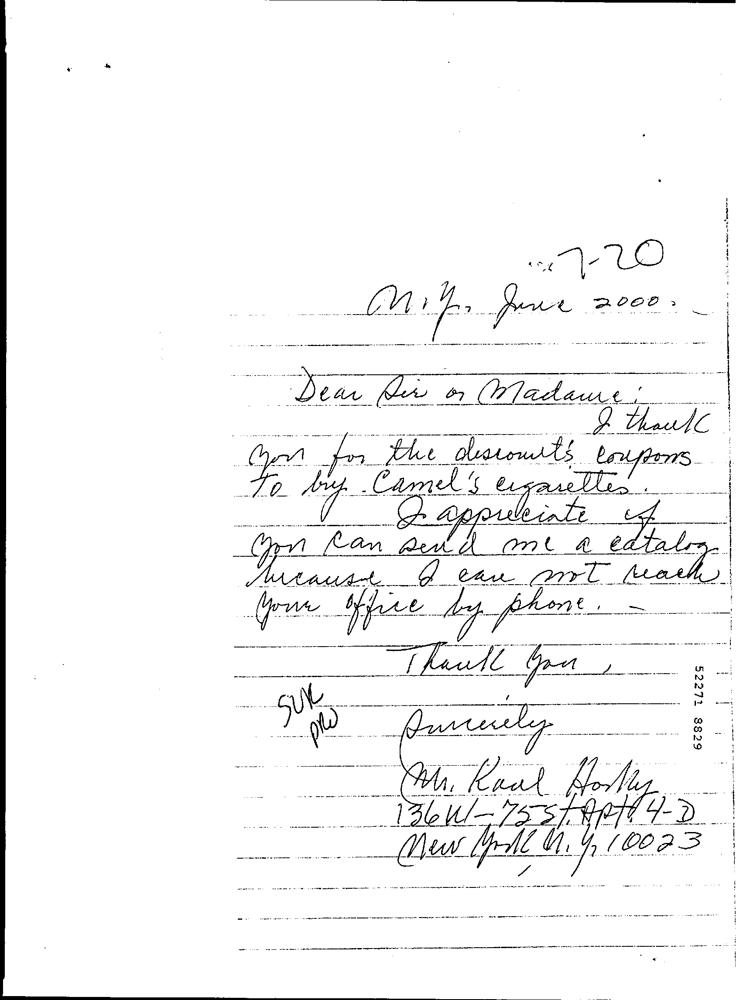 7-20
N.Y. June 2000.
Dear Sir or Madame:
I thank
you for the descount's coupons
to buy Camel's cigarettes.
I appreciate if
you can send me a catalog
because I can not reach
your office by phone. -
Thank you,
SUK
PRO
Sincerely
Mr. Raul
136 W-75 St. Apt# 4-D
New York N.Y. 10023
52271 8829